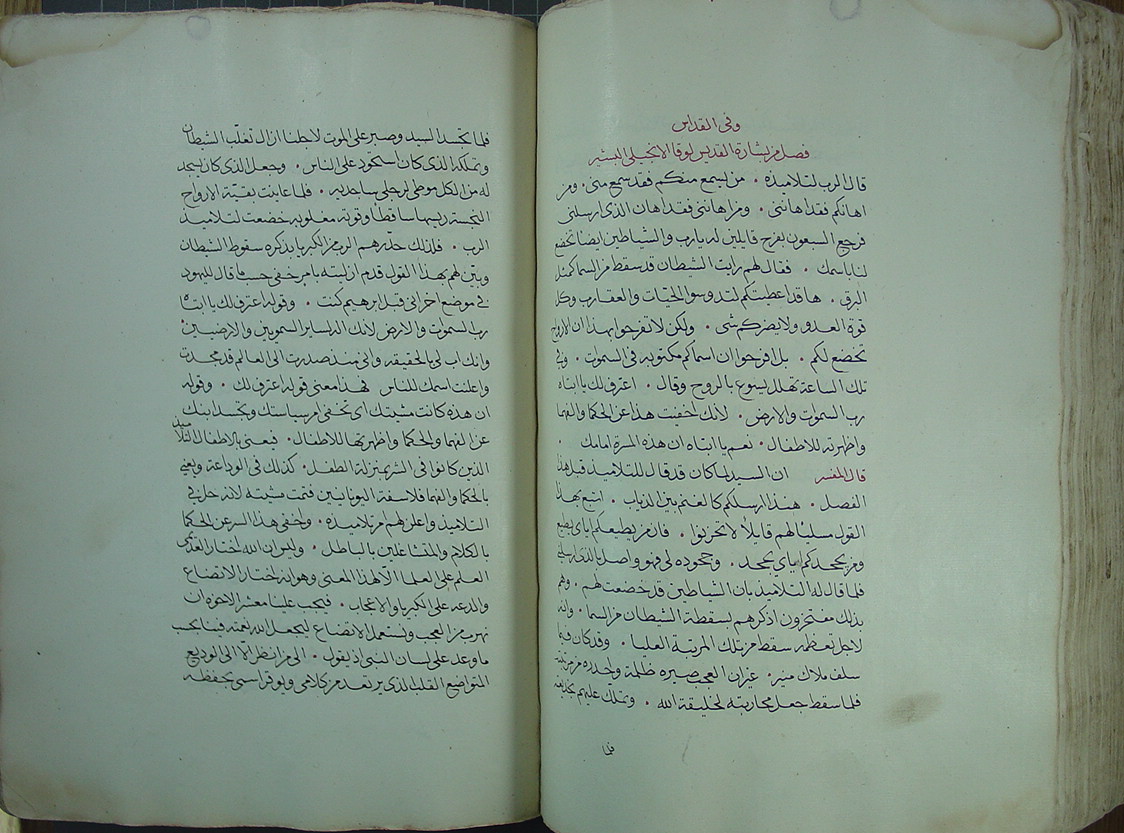 وفى القداس
فصل من بشارة القديس لوقا الانجيلى البشير
قال الرب لتلاميذه . من يسمع منكم فقد سمع منى . ومن
اهانكم فقد اهاننى . ومن اهاننى فقد اهان الذى ارسلنى
فرجع السبعون بفرح قايلين له يارب والشياطين ايضا تخضع
لنا باسمك . فقال لهم رايت الشيطان قد سقط من السما كمثل
البرق . ها قد اعطيتكم لتدوسوا الحيات والعقارب وكل
قوة العدو ولا يضركم شى . ولكن لا تفرحوا بهذا ان الارواح
تخضع لكم . بل افرحوا ان اسماكم مكتوبه فى السموات . وفى
تلك الساعة تهلل يسوع بالروح وقال . اعترف لك يا ابتاه
رب السموات والارض . لانك اخفيت هذا عن الحكما والفهما
واظهرته للاطفال . نعم يا ابتاه ان هذه المسرة امامك .
قال المفسر ان السيد لما كان قد قال للتلاميذ قبل هذا
الفصل . هنذا ارسلكم كالغنم بين الذياب . اتبع بهذا
القول مسليا لهم قايلا لا تحزنوا . فان من يطيعكم اياى يطيع
ومن يجحدكم اياى يجحد . وجحوده لى فهو واصل بالذى ارسلنى
فلما قال له التلاميذ بان الشياطين قد خضعت لهم . وهم
بذلك مفتخرون اذكرهم بسقطة الشيطان من السما . وانه
لاجل تعظمه سقط من تلك المرتبة العليا . وقد كان فيما
سلف ملاك منير . غير ان العجب صيره ظلمة واحدره من مرتبته
فلما سقط جعل محاربته لخليقة الله . وتملك عليهم بخديعته
فلما
فلما تجسد السيد وصبر على الموت لاجلنا ازال تغلب الشيطان
وتملكه الذى كان استحوذ على الناس . وجعل الذى كان يسجد
له من الكل موطى لرجلى ساجديه . فلما عاينت بقية الارواح
النجسة ريسها ساقطا وقوته مغلوبه خضعت لتلاميذ
الرب . فلذلك حذرهم الرب من الكبريا بذكره سقوط الشيطان
وبين لهم بهذا القول قدم ازليته بامر خفى حسب ما قال لليهود
فى موضع اخر انى قبل ابرهيم كنت . وقوله اعترف لك يا ابتاه
رب السموات والارض لانك الدساير السمويين والارضيين .
وانك اب لى بالحقيقه وانى منذ صدرت الى العالم قد مجدت
واعلنت اسمك للناس فهذا معنى قوله اعترف لك . وقوله
ان هذه كانت مشيتك اى تخفى امر سياستك وتجسد ابنك
عن الفهما والحكما واظهرتها للاطفال . فيعنى بالاطفال التلاميذ
الذين كانوا فى الشر بمنزلة الطفل . كذلك فى الوداعة ويعنى
بالحكما والفهما فلاسفة اليونانيين فتمت مشيته لانه حل فى
التلاميذ واعلن لهم امر تلاميذه . واخفى هذا السر عن الحكما
بالكلام والمتشاغلين بالباطل . وليس ان الله اختار العديمى
العلم على العلما الا لهذا المعنى وهو انه اختار الاتضاع
والدعه على الكبريا والاعجاب . فيجب علينا معشر الاخوه ان
نهرب من العجب ونستعمل الاتضاع ليجعل الله نعمته فينا بحسب
ما وعد على لسان النبى اذ يقول . الى من انظر الا الى الوديع
المتواضع القلب الذى يرتعد من كلامى ويوقر اسمى بحفظه